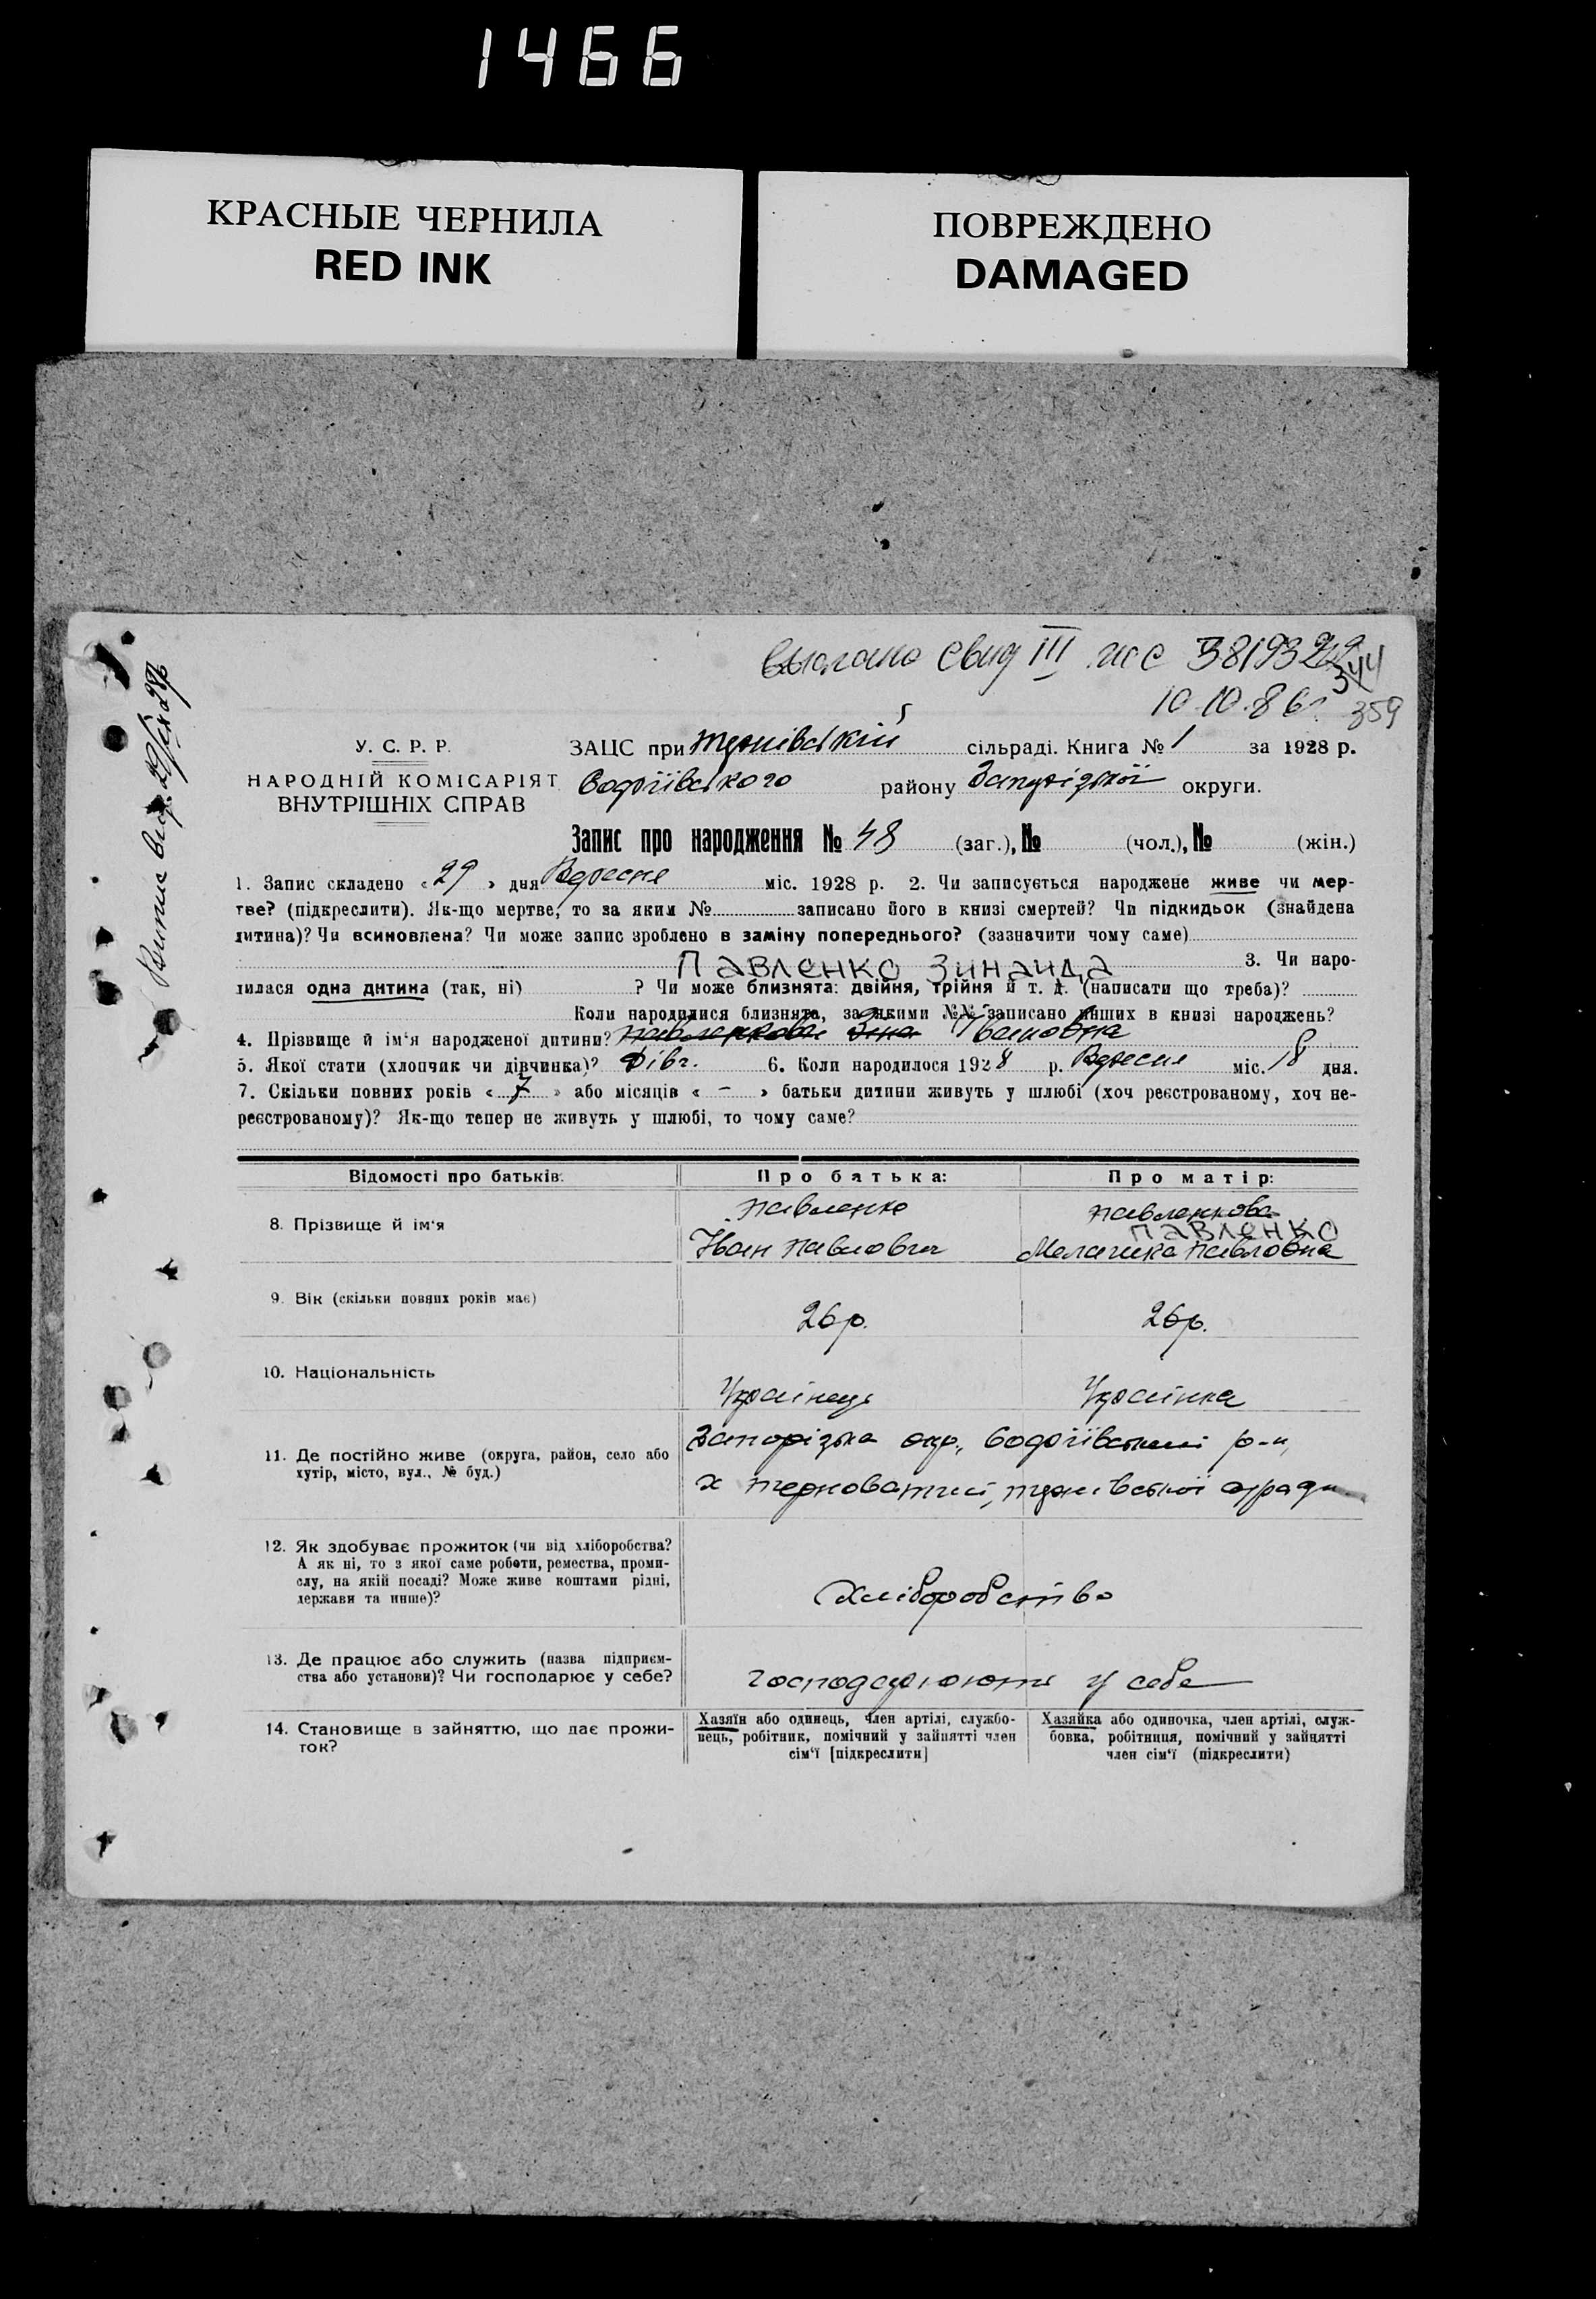 1466
КРАСНЫЕ ЧЕРНИЛА
RED INK
ПОВРЕЖДЕНО
DAMAGED
Свид III жс
10.10.86г. 359
У. С. Р. Р.
НАРОДНІЙ КОМІСАРІЯТ
ВНУТРІШНІХ СПРАВ
ЗАЦС при Тернівській сільраді. Книга № 1 за 1928 р.
району Запорізької округи.
Запис про народження № 48 (заг.), № (чол.), № (жін.)
1. Запис складено «29» дня Вересня міс. 1928 р. 2. Чи записується народжене живе чи мер-
тве? (підкреслити). Як-що мертве, то за яким № записано його в книзі смертей? Чи підкидьок (знайдена
дитина)? Чи всиновлена? Чи може запис зроблено в заміну попереднього? (зазначити чому саме)
ПАВЛЕНКО ЗИНАИДА 3. Чи наро-
дилася одна дитина (так, ні) ? Чи може близнята: двійня, трійня й т. д. (написати що треба)?
Коли народилися близнята, за якими №№ записано инших в книзі народжень?
4. Прізвище й ім'я народженої дитини? Павленкова Зіна Івановна
5. Якої стати (хлопчик чи дівчинка)? Дівч. 6. Коли народилося 1928 р. Вересня міс. 18 дня.
7. Скільки повних років «7» або місяців «-» батьки дитини живуть у шлюбі (хоч реєстрованому, хоч не-
реєстрованому)? Як-що тепер не живуть у шлюбі, то чому саме?
Відомості про батьків: Про батька: Про матір:
8. Прізвище й ім'я
Павленко
Іван Павлович
Павленкова
ПАВЛЕНКО
Павловна
9. Вік (скільки повних років має)
26 р.
26 р.
10. Національність
Українець
Українка
11. Де постійно живе (округа, район, село або
хутір, місто, вул., № буд.)
Запорізька окр., р-н,
х
12. Як здобуває прожиток (чи від хліборобства?
А як ні, то з якої саме роботи, ремества, проми-
слу, на якій посаді? Може живе коштами рідні,
держави та инше)?
Хліборобство
13. Де працює або служить (назва підприєм-
ства або установи)? Чи господарює у себе?
господарюють у себе
14. Становище в зайняттю, що дає прожи-
ток?
Хазяїн або одинець, член артілі, службо-
вець, робітник, помічний у зайнятті член
сім'ї [підкреслити]
Хазяйка або одиночка, член артілі, служ-
бовка, робітниця, помічний у зайнятті
член сім'ї (підкреслити)